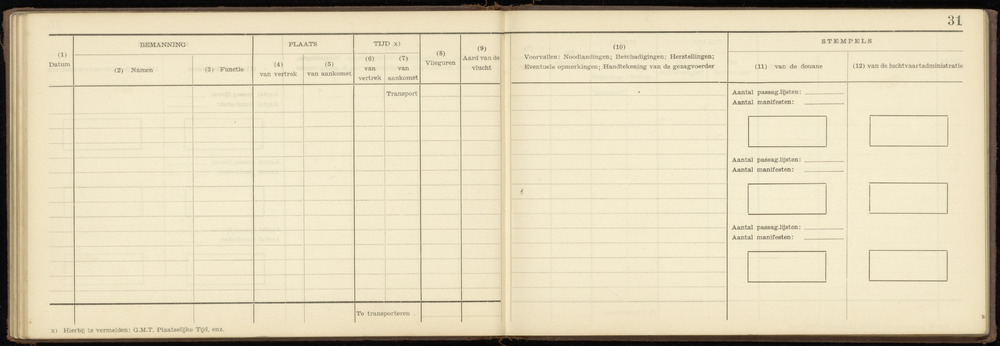 31
(1)
Datum
BEMANNING
(2) Namen
(3) Functie
PLAATS
(4)
van vertrek
(5)
van aankomst
TIJD x)
(6)
van
vertrek
(7)
van
aankomst
(8)
Vlieguren
(9)
Aard van de
vlucht
(10)
Voorvallen: Noodlandingen; Beschadigingen; Herstellingen;
Eventuele opmerkingen; Handtekening van de gezagvoerder
STEMPELS
(11) van de douane
(12) van de luchtvaartadministratie
Transport
Aantal passag.lijsten:
Aantal manifesten:
Aantal passag.lijsten:
Aantal manifesten:
Aantal passag.lijsten:
Aantal manifesten:
Te transporteren
x) Hierbij te vermelden: G.M.T. Plaatselijke Tijd, enz.